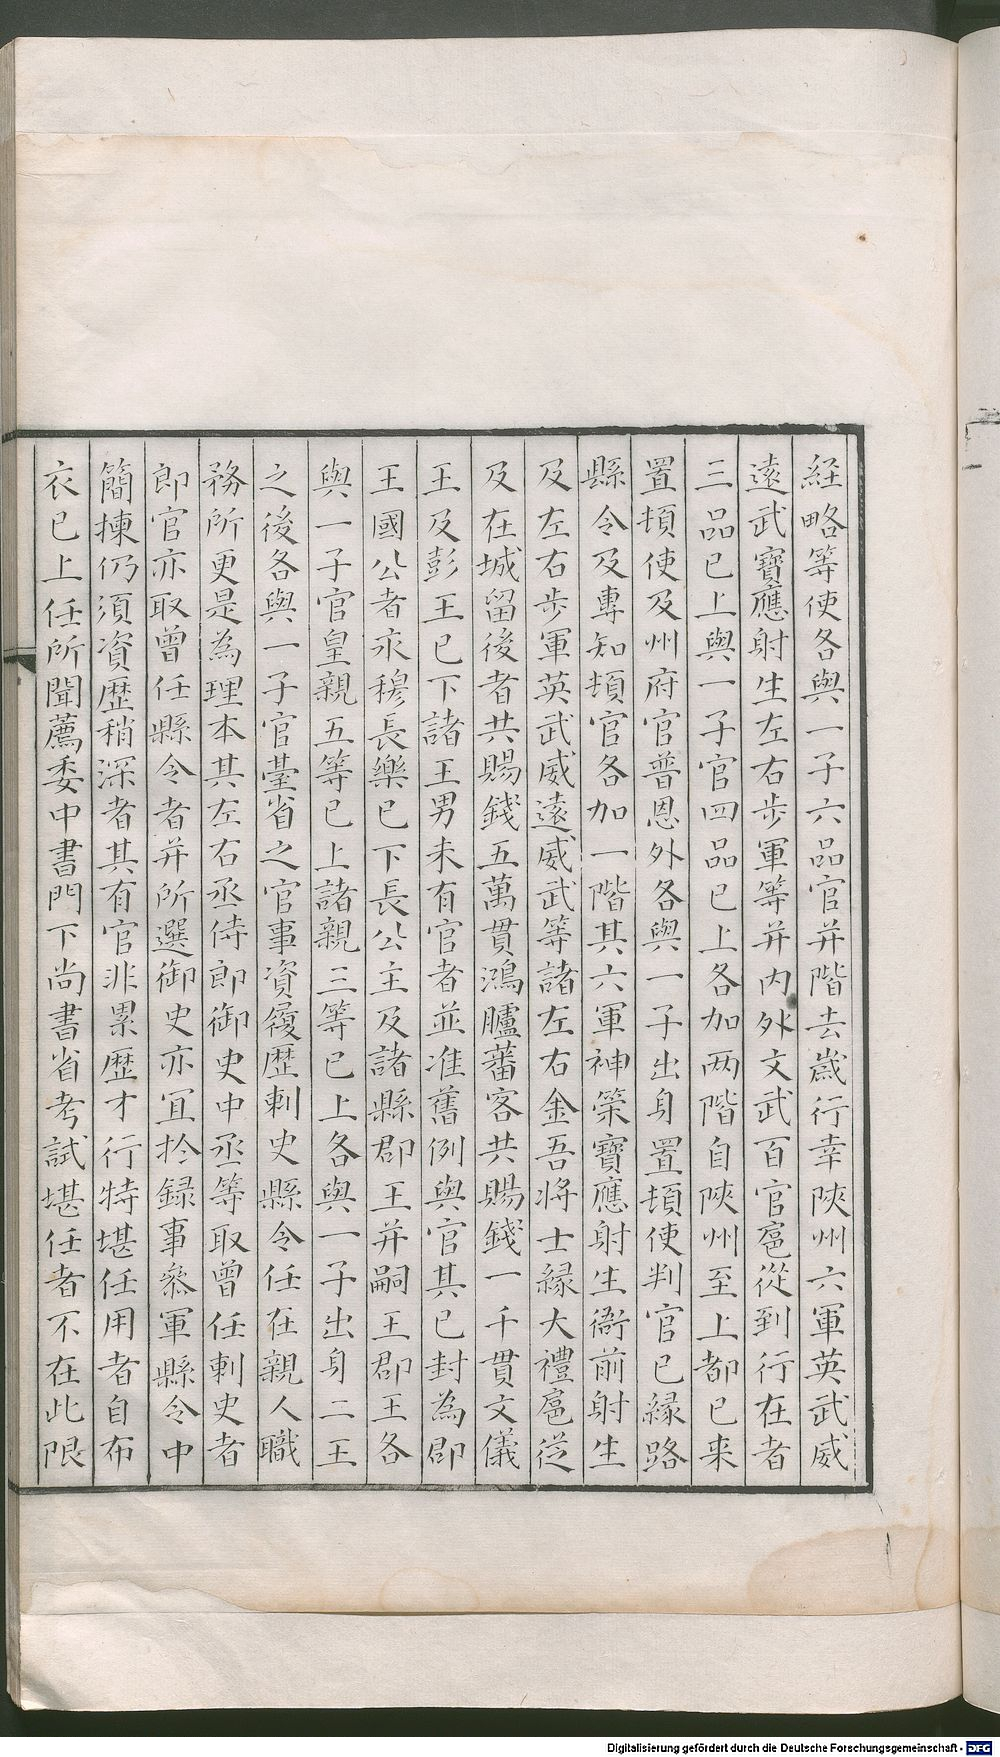 経略等使各與一子六品官并階去嵗行幸陝州六軍英武威
遠武寶應射生左右步軍等并内外文武百官扈從到行在者
三品已上與一子官四品已上各加两階自陝州至上都已来
置頓使及州府官普恩外各與一子出身置頓使判官已縁路
縣令及專知頓官各加一階其六軍神策寶應射生衙前射生
及左右步軍英武威遠威武等諸左右金吾將士縁大禮扈從
及在城留後者共賜錢五萬貫鴻臚蕃客共賜錢一千貫文儀
王及彭王已下諸王男未有官者並准舊例與官其已封為郡
王國公者永穆長樂已下長公主及諸縣郡王并嗣王郡王各
與一子官皇親五等已上諸親三等已上各與一子出身二王
之後各與一子官臺省之官事資履歴刺史縣令任在親人職
務所更是為理本其左右丞侍郎御史中丞等取曾任刺史者
郎官亦取曾任縣令者并所選御史亦宜於録事叅軍縣令中
簡揀仍須資歴稍深者其有官非累歴才行特堪任用者自布
衣已上任所聞薦委中書門下尚書省考試堪任者不在此限
Digitalisierung gefördert durch die Deutsche Forschungsgemeinschaft - DFG